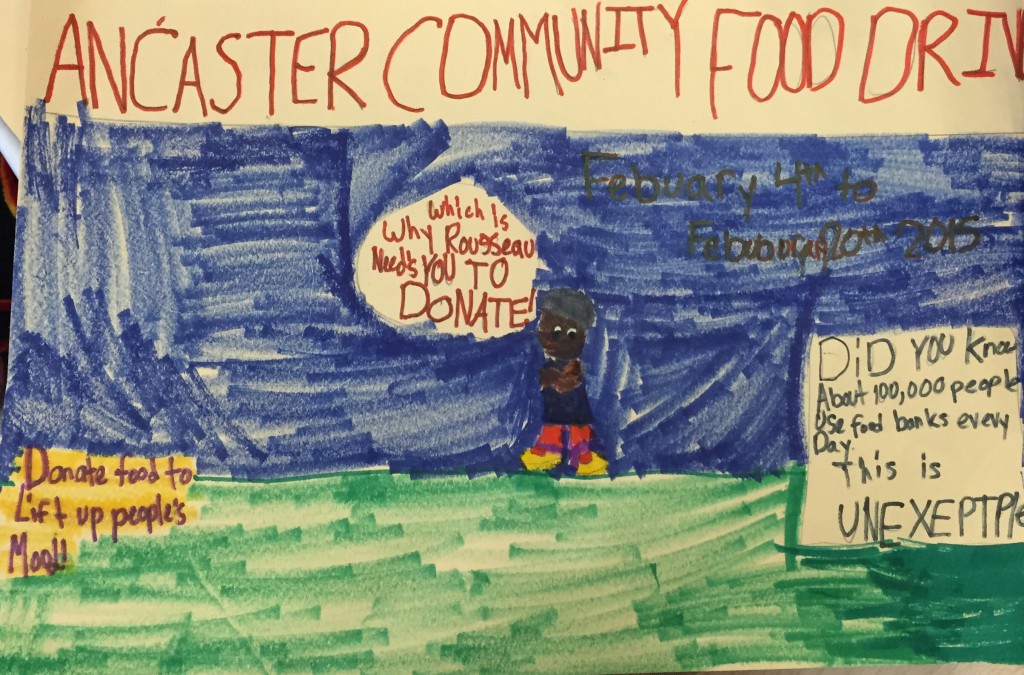 ANCASTER COMMUNITY FOOD DRIV
Febuary 4th to
Febuuary 20th 2015
Which Is
Why Rousseau
Need's YOU TO
DONATE!
DiD YOU Know
About 100,000 people
Use food banks every
Day.
This is
UNEXEPTPLE
Donate food to
Lift up people's
Mood!